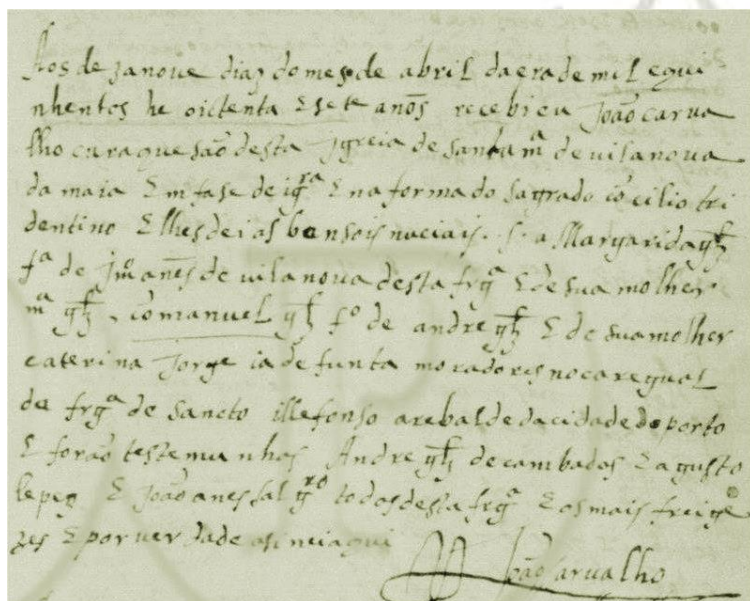 Aos dezanove dias do mes de abril da era de mil e qui
nhentos he oictenta E sete anõs recebi eu João carva
lho cura que são desta Jgreia de santa mª de vilanova
da maia Em fase de igrª E na forma do sagrado cõcilio tri
dentino E lhes dei as bensois nuciais. s. a Margarida glz
fª de Jmº anes de vilanova desta frgª E de sua molher
mª glz, cõ manuel glz fº de andre glz E de sua molher
caterina Jorge ia defunta moradoris no caregual
da frgª de sancto illefonso arebalde da cidade do porto
E forão testemunhas Andre glz de cambados E agusto
lopez E João anes sal grº todos desta frgª E os mais freige
zes E por verdade asinei aqui
João Carvalho